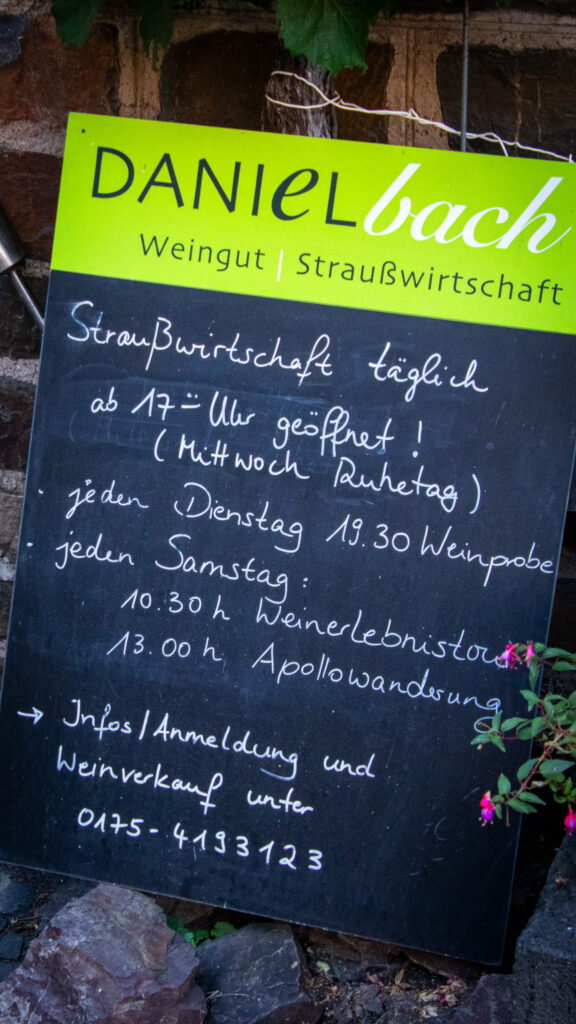 DANIEL bach
Weingut | Straußwirtschaft
Straußwirtschaft täglich
ab 17-Uhr geöffnet!
(Mittwoch Ruhetag)
· jeden Dienstag 19.30 Weinprobe
· jeden Samstag:
10.30 h Weinerlebnistour
13.00 h Apollowanderung
→ Infos/Anmeldung und
Weinverkauf unter
0175-4193123